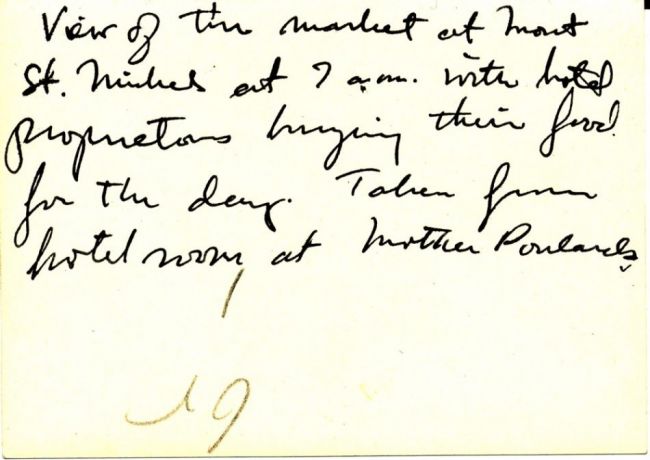 View of the market at Mont
St. Michel at 7 a.m. with hotel
proprietors buying their food
for the day. Taken from
hotel room, at Mother Poulards,